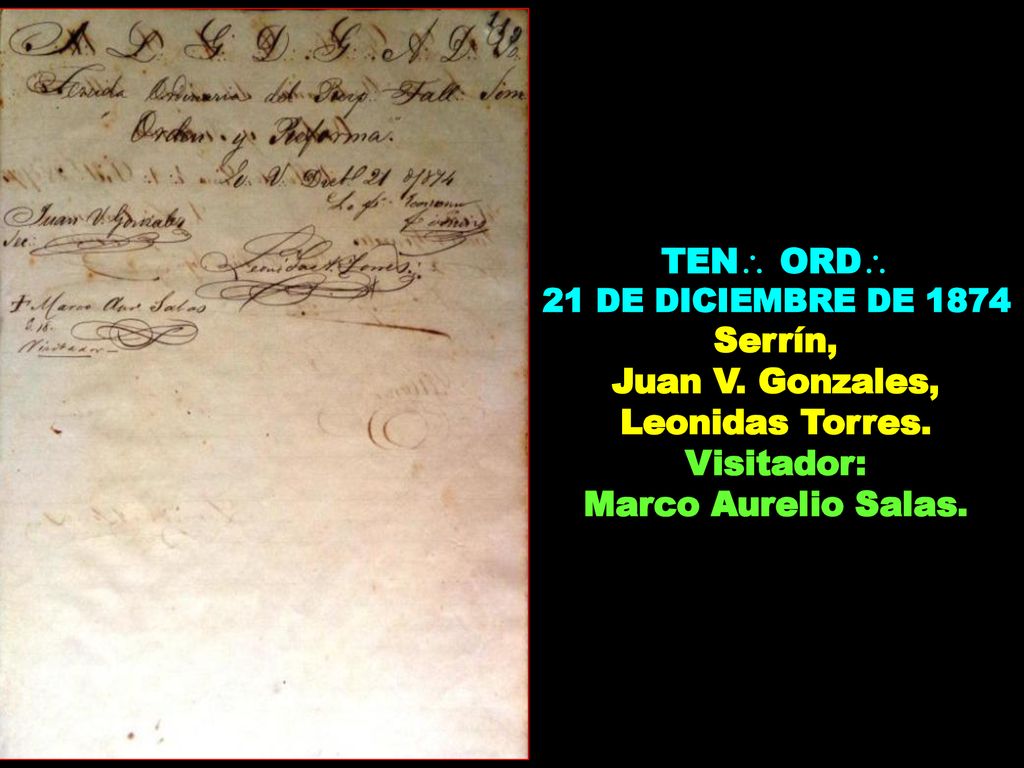 A. L. G. D. G. A. D. U.
Tenida Ordinaria del Resp. Tall. Sim.
"Orden y Reforma."
Le. V. Dicbe. 21 8/874
Juan V. Gonzales
Sec.
Leonidas Torres
Marco Aur. Salas
Visitador
TEN∴ ORD∴
21 DE DICIEMBRE DE 1874
Serrín,
Juan V. Gonzales,
Leonidas Torres.
Visitador:
Marco Aurelio Salas.